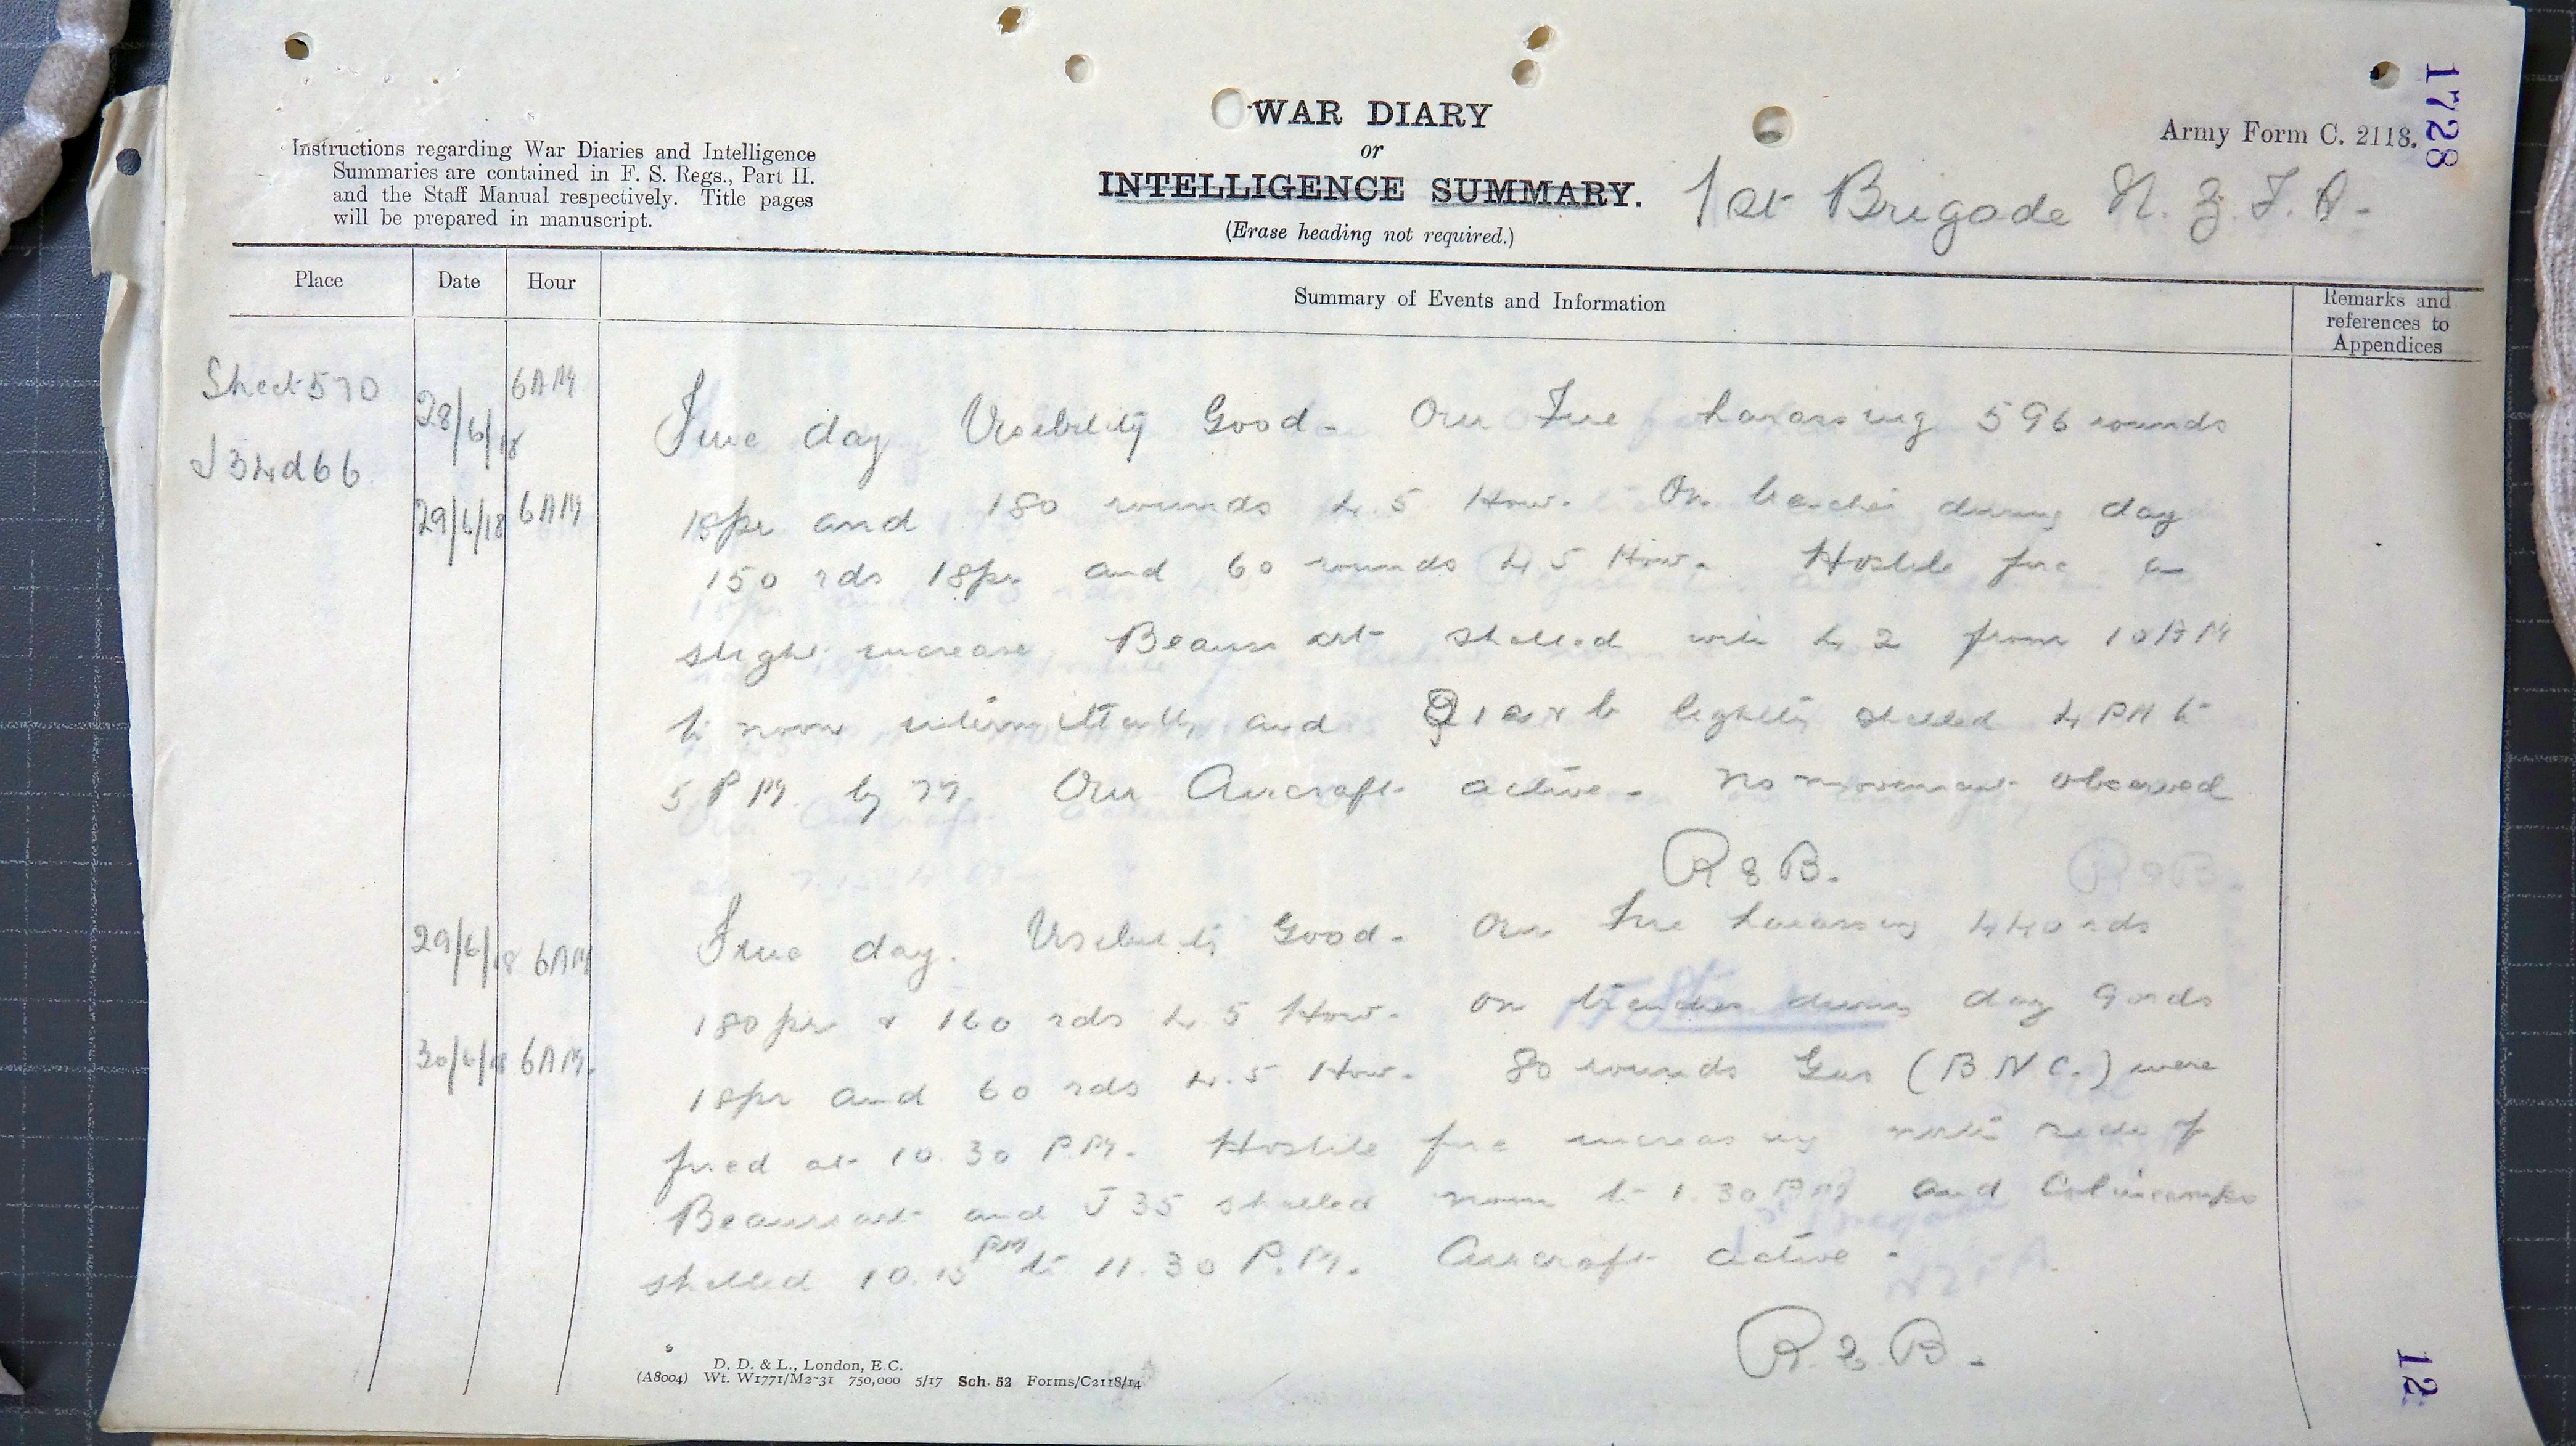 1728
WAR DIARY
or
INTELLIGENCE SUMMARY.
(Erase heading not required.)
Army Form C. 2118.
Instructions regarding War Diaries and Intelligence
Summaries are contained in F. S. Regs., Part II.
and the Staff Manual respectively. Title pages
will be prepared in manuscript.
1st Brigade N. Z. F. A.
Place
Date
Hour
Summary of Events and Information
Remarks and
references to
Appendices
Sheet 57D
J34d66
28/6/18 6AM
29/6/18 6AM
Fine day Visibility Good. Our Fire harassing 596 rounds
18pr and 180 rounds 4.5 How. On trenches during day
150 rds 18pr and 60 rounds 4 5 How. Hostile fire a
slight increase Beaussart shelled with 4 2 from 10AM
to noon intermittently and Q1a & b lightly shelled 4 PM to
5 PM by 77. Our Aircraft active. No movement observed
R & B.
29/6/18 6AM
30/6/18 6AM.
Fine day. Visibility Good. Our Fire harassing 440 rds
180pr & 160 rds 4 5 How. on trenches during day 90 rds
18pr and 60 rds 4.5 How. 80 rounds Gas (B N C.) were
fired at 10.30 P.M. Hostile fire increasing side of
Beaussart and J 35 shelled noon to 1.30 PM and Colincamps
shelled 10.15 PM to 11.30 P.M. Aircraft active.
R. & B.
D. D. & L., London, E.C.
(A8004) Wt. W1771/M2-31 750,000 5/17 Sch. 52 Forms/C2118/14
12